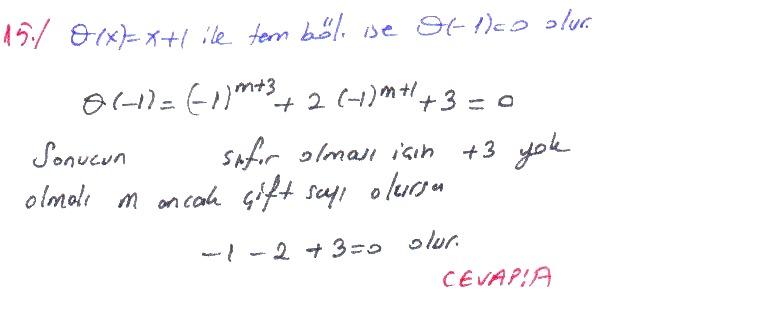 15./ Q(x)= x+1 ile tam böl. ise Q(-1)=0 olur.
Q(-1)= (-1)^{m+3} + 2 (-1)^{m+1} + 3 = 0
Sonucun sıfır olması için +3 yok
olmalı m ancak çift sayı olursa
-1 - 2 + 3 = 0 olur.
CEVAP:A